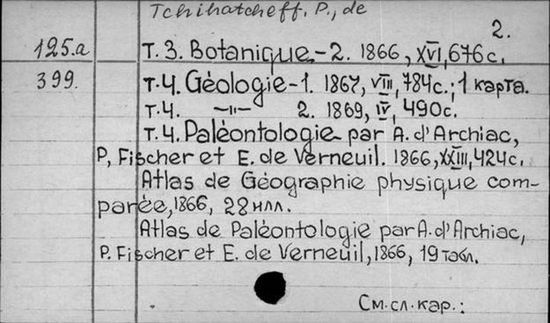 Tchihatcheff, P., de
2.
125.a т. 3. Botanique.-2. 1866, XVI, 676 с.
399. т. 4. Géologie-1. 1867, VIII, 784 с.; 1 карта.
т. 4. —"— 2. 1869, IV, 490 с.
т. 4. Paléontologie par A. d'Archiac,
P, Fischer et E. de Verneuil. 1866, XXIII, 424 с.
Atlas de Géographie physique com-
parée, 1866, 28 илл.
Atlas de Paléontologie par A. d'Archiac,
P. Fischer et E. de Verneuil, 1866, 19 табл.
См. сл. кар.: